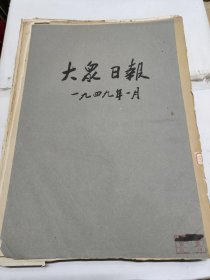 大眾日報
一九四九年一月